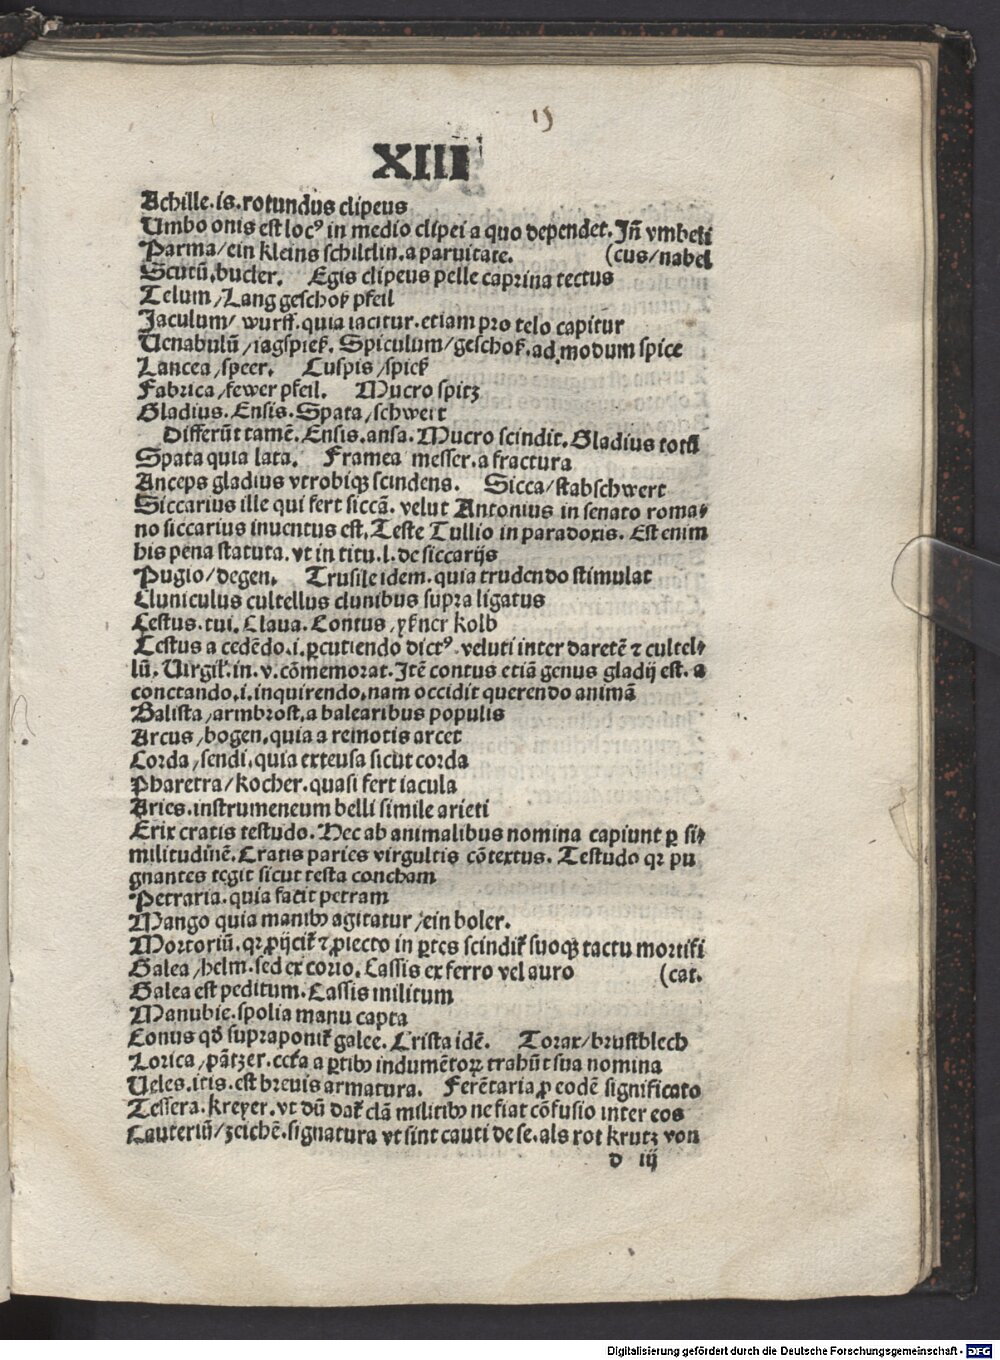 15
XIII
Achille.is.rotundus clipeus
Umbo onis est locꝰ in medio clipei a quo dependet. Jñ vmbeli
Parma/ein kleins schiltlin.a paruitate. (cus/nabel
Scutũ.bucler. Egis clipeus pelle caprina tectus
Telum/Lang geschoß pfeil
Jaculum/ wurff.quia iacitur.etiam pro telo capitur
Uenabulũ/iagspieß. Spiculum/geschoß.ad modum spice
Lancea/speer. Cuspis/spieß
Fabrica/fewer pfeil. Mucro spitz
Gladius.Ensis.Spata/schwert
Differũt tamẽ.Ensis.ansa.Mucro scindit.Gladius totũ
Spata quia lata. Framea messer.a fractura
Anceps gladius vtrobiqꝫ scindens. Sicca/stabschwert
Siccarius ille qui fert siccã. velut Antonius in senato roma⸗
no siccarius inuentus est. Teste Tullio in paradoxis. Est enim
his pena statuta.vt in titu.l.de siccarijs
Pugio/degen. Trusile idem.quia trudendo stimulat
Cluniculus cultellus clunibus supra ligatus
Cestus.tui.Claua.Contus, kolb
Testus a cedẽdo.i.ꝑcutiendo dictꝰ.veluti inter daretẽ ⁊ cultel⸗
lũ. Uirgil̃.in.v.cõmemorat.Jtẽ contus etiã genus gladij est. a
conctando.i.inquirendo.nam occidit querendo animã
Balista/armbrost.a balearibus populis
Arcus/bogen.quia a remotis arcet
Corda/sendi.quia extensa sicut corda
Pharetra/kocher.quasi fert iacula
Aries.instrumeneum belli simile arieti
Erix cratis testudo. Hec ab animalibus nomina capiunt ꝑ si⸗
militudinẽ. Cratis paries virgultis cõtextus. Testudo qꝛ pu
gnantes tegit sicut testa concham
Petraria.quia facit petram
Mango quia manibꝫ agitatur/ein boler.
Mortoriũ.qꝛ ꝓijcit̃ ⁊ ꝓiecto in ꝑtes scindit̃ suoqꝫ tactu mortifi
Galea/helm.sed ex corio. Cassis ex ferro vel auro (cat.
Galea est peditum.Cassis militum
Manubie.spolia manu capta
Conus qđ supraponit̃ galee. Crista idẽ. Torax/brustblech
Lorica/pãtzer.cet̃a a ꝑtibꝫ indumẽtoꝝ trahũt sua nomina
Ueles.itis.est breuis armatura. Ferẽtaria ꝓ eodẽ significato
Tessera.kreyer.vt dũ dat̃ clã militibꝫ ne fiat cõfusio inter eos
Cauteriũ/zeichẽ.signatura vt sint cauti de se.als rot krutz von
d iij
Digitalisierung gefördert durch die Deutsche Forschungsgemeinschaft - DFG